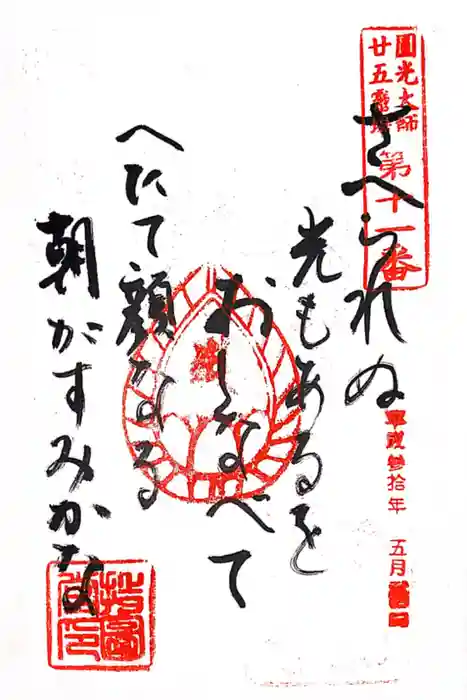 圓光大師
廿五霊場
第十一番
さへられぬ
光もあるを
おしなべて
へだて顔なる
朝がすみかな
平成参拾年 五月